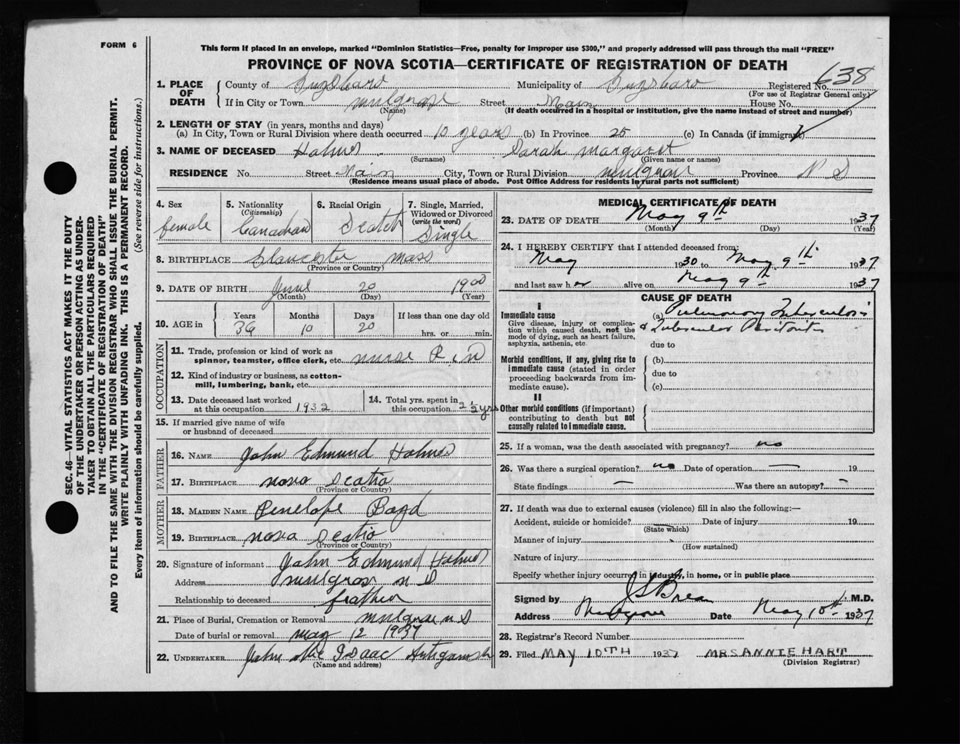 FORM 6
This form if placed in an envelope, marked "Dominion Statistics—Free, penalty for improper use $300," and properly addressed will pass through the mail "FREE"
PROVINCE OF NOVA SCOTIA—CERTIFICATE OF REGISTRATION OF DEATH
638
1. PLACE OF DEATH County of Guysboro Municipality of Guysboro Registered No.
(For use of Registrar General only)
If in City or Town Mulgrave Street Main House No.
(Name) (If death occurred in a hospital or institution, give the name instead of street and number)
2. LENGTH OF STAY (in years, months and days)
(a) In City, Town or Rural Division where death occurred 10 years (b) In Province 25 (c) In Canada (if immigrant)
3. NAME OF DECEASED Holmes Sarah Margaret
(Surname) (Given name or names)
RESIDENCE No. Street Main City, Town or Rural Division Mulgrave Province N S
(Residence means usual place of abode. Post Office Address for residents in rural parts not sufficient)
4. Sex female
5. Nationality (Citizenship) Canadian
6. Racial Origin Scotch
7. Single, Married, Widowed or Divorced (write the word) Single
8. BIRTHPLACE Gloucester Mass
(Province or Country)
9. DATE OF BIRTH June 20 1900
(Month) (Day) (Year)
10. AGE in Years 36 Months 10 Days 20 If less than one day old
hrs. or min.
OCCUPATION
11. Trade, profession or kind of work as spinner, teamster, office clerk, etc. nurse R. N
12. Kind of industry or business, as cotton-mill, lumbering, bank, etc.
13. Date deceased last worked at this occupation 1932
14. Total yrs. spent in this occupation 2½ yrs
15. If married give name of wife or husband of deceased
FATHER
16. NAME John Edmund Holmes
17. BIRTHPLACE Nova Scotia
(Province or Country)
MOTHER
18. MAIDEN NAME Penelope Boyd
19. BIRTHPLACE Nova Scotia
(Province or Country)
20. Signature of informant John Edmund Holmes
Address Mulgrave N S
Relationship to deceased father
21. Place of Burial, Cremation or Removal Mulgrave N S
Date of burial or removal May 12 1937
22. UNDERTAKER John Mc Isaac Antigonish
(Name and address)
MEDICAL CERTIFICATE OF DEATH
23. DATE OF DEATH May 9th 1937
(Month) (Day) (Year)
24. I HEREBY CERTIFY that I attended deceased from:
May 1930 to May 9th 1937
and last saw her alive on May 9th 1937
CAUSE OF DEATH
I
Immediate cause
Give disease, injury or complication which caused death, not the mode of dying, such as heart failure, asphyxia, asthenia, etc
(a) Pulmonary Tuberculosis
& Tubercular Peritonitis
due to
Morbid conditions, if any, giving rise to immediate cause (stated in order proceeding backwards from immediate cause).
(b)
due to
(c)
II
Other morbid conditions (if important) contributing to death but not causally related to immediate cause.
25. If a woman, was the death associated with pregnancy? no
26. Was there a surgical operation? no Date of operation — 19
State findings — Was there an autopsy? —
27. If death was due to external causes (violence) fill in also the following:—
Accident, suicide or homicide? Date of injury 19
(State which)
Manner of injury
(How sustained)
Nature of injury
Specify whether injury occurred in industry, in home, or in public place
Signed by M.D.
Address Mulgrave Date May 10th 1937
28. Registrar's Record Number
29. Filed MAY 10TH 1937 MRS ANNIE HART
(Division Registrar)
SEC. 46—VITAL STATISTICS ACT MAKES IT THE DUTY
OF THE UNDERTAKER OR PERSON ACTING AS UNDERTAKER TO OBTAIN ALL THE PARTICULARS REQUIRED
IN THE "CERTIFICATE OF REGISTRATION OF DEATH"
AND TO FILE THE SAME WITH THE DIVISION REGISTRAR WHO SHALL ISSUE THE BURIAL PERMIT.
WRITE PLAINLY WITH UNFADING INK. THIS IS A PERMANENT RECORD.
Every item of information should be carefully supplied. (See reverse side for instructions.)